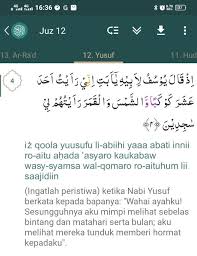 16:36
Juz 12
13. Ar-Ra'd 12. Yusuf 11. Hud
4
اِذْ قَالَ يُوْسُفُ لِاَبِيْهِ يٰٓاَبَتِ اِنِّيْ رَاَيْتُ اَحَدَ
عَشَرَ كَوْكَبًا وَّالشَّمْسَ وَالْقَمَرَ رَاَيْتُهُمْ لِيْ
سٰجِدِيْنَ ﴿٤﴾
iż qoola yuusufu li-abiihi yaaa abati innii
ro-aitu aḥada 'asyaro kaukabaw
wasy-syamsa wal-qomaro ro-aituhum lii
saajidiin
(Ingatlah peristiwa) ketika Nabi Yusuf
berkata kepada bapanya: "Wahai ayahku!
Sesungguhnya aku mimpi melihat sebelas
bintang dan matahari serta bulan; aku
melihat mereka tunduk memberi hormat
kepadaku".